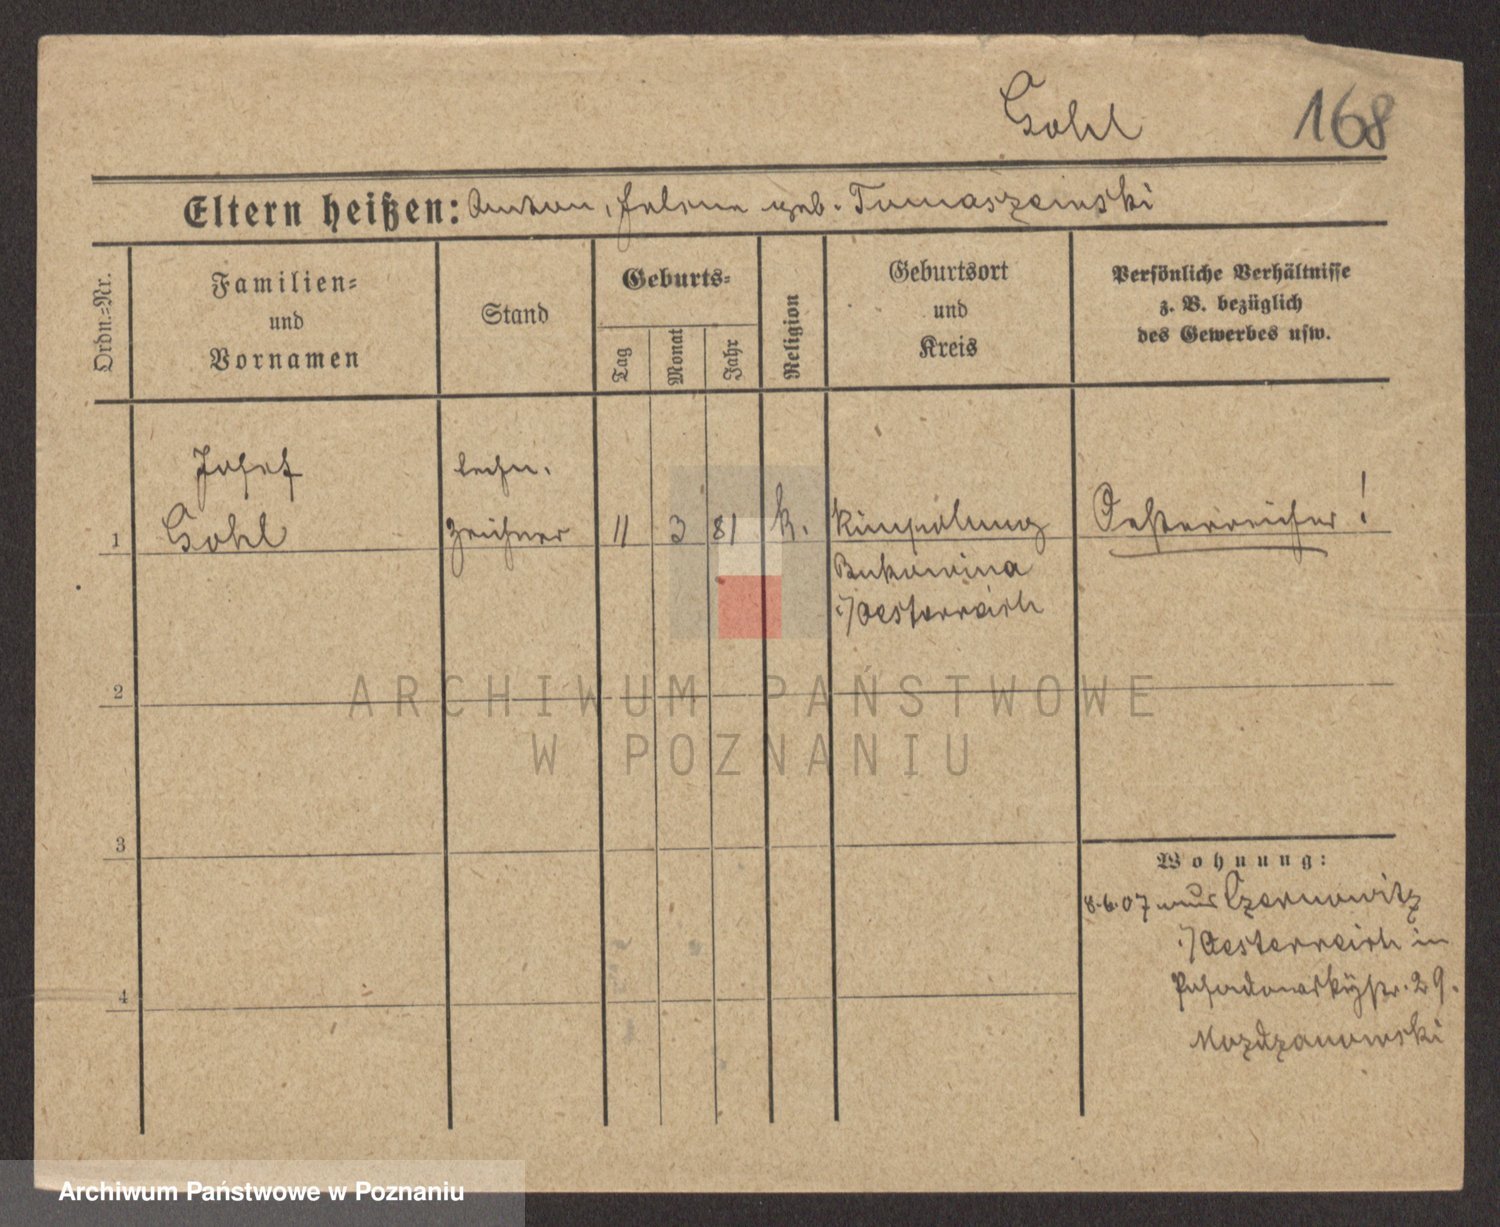 Gohl 168
Eltern heißen: Anton, Helene geb. Tomaszewski
Ordn.-Nr.
Familien-
und
Vornamen
Stand
Geburts-
Tag
Monat
Jahr
Religion
Geburtsort
und
Kreis
Persönliche Verhältnisse
z. B. bezüglich
des Gewerbes usw.
Josef techn.
1 Gohl Zeichner 11 3 81 k. Kimpolung Oesterreicher!
Bukowina
i/Oesterreich
2
3
4
Wohnung:
8.6.07 aus Czernowitz
i/Oesterreich in
Posadowskystr. 29.
Mozdzanowski
ARCHIWUM PAŃSTWOWE
W POZNANIU
Archiwum Państwowe w Poznaniu